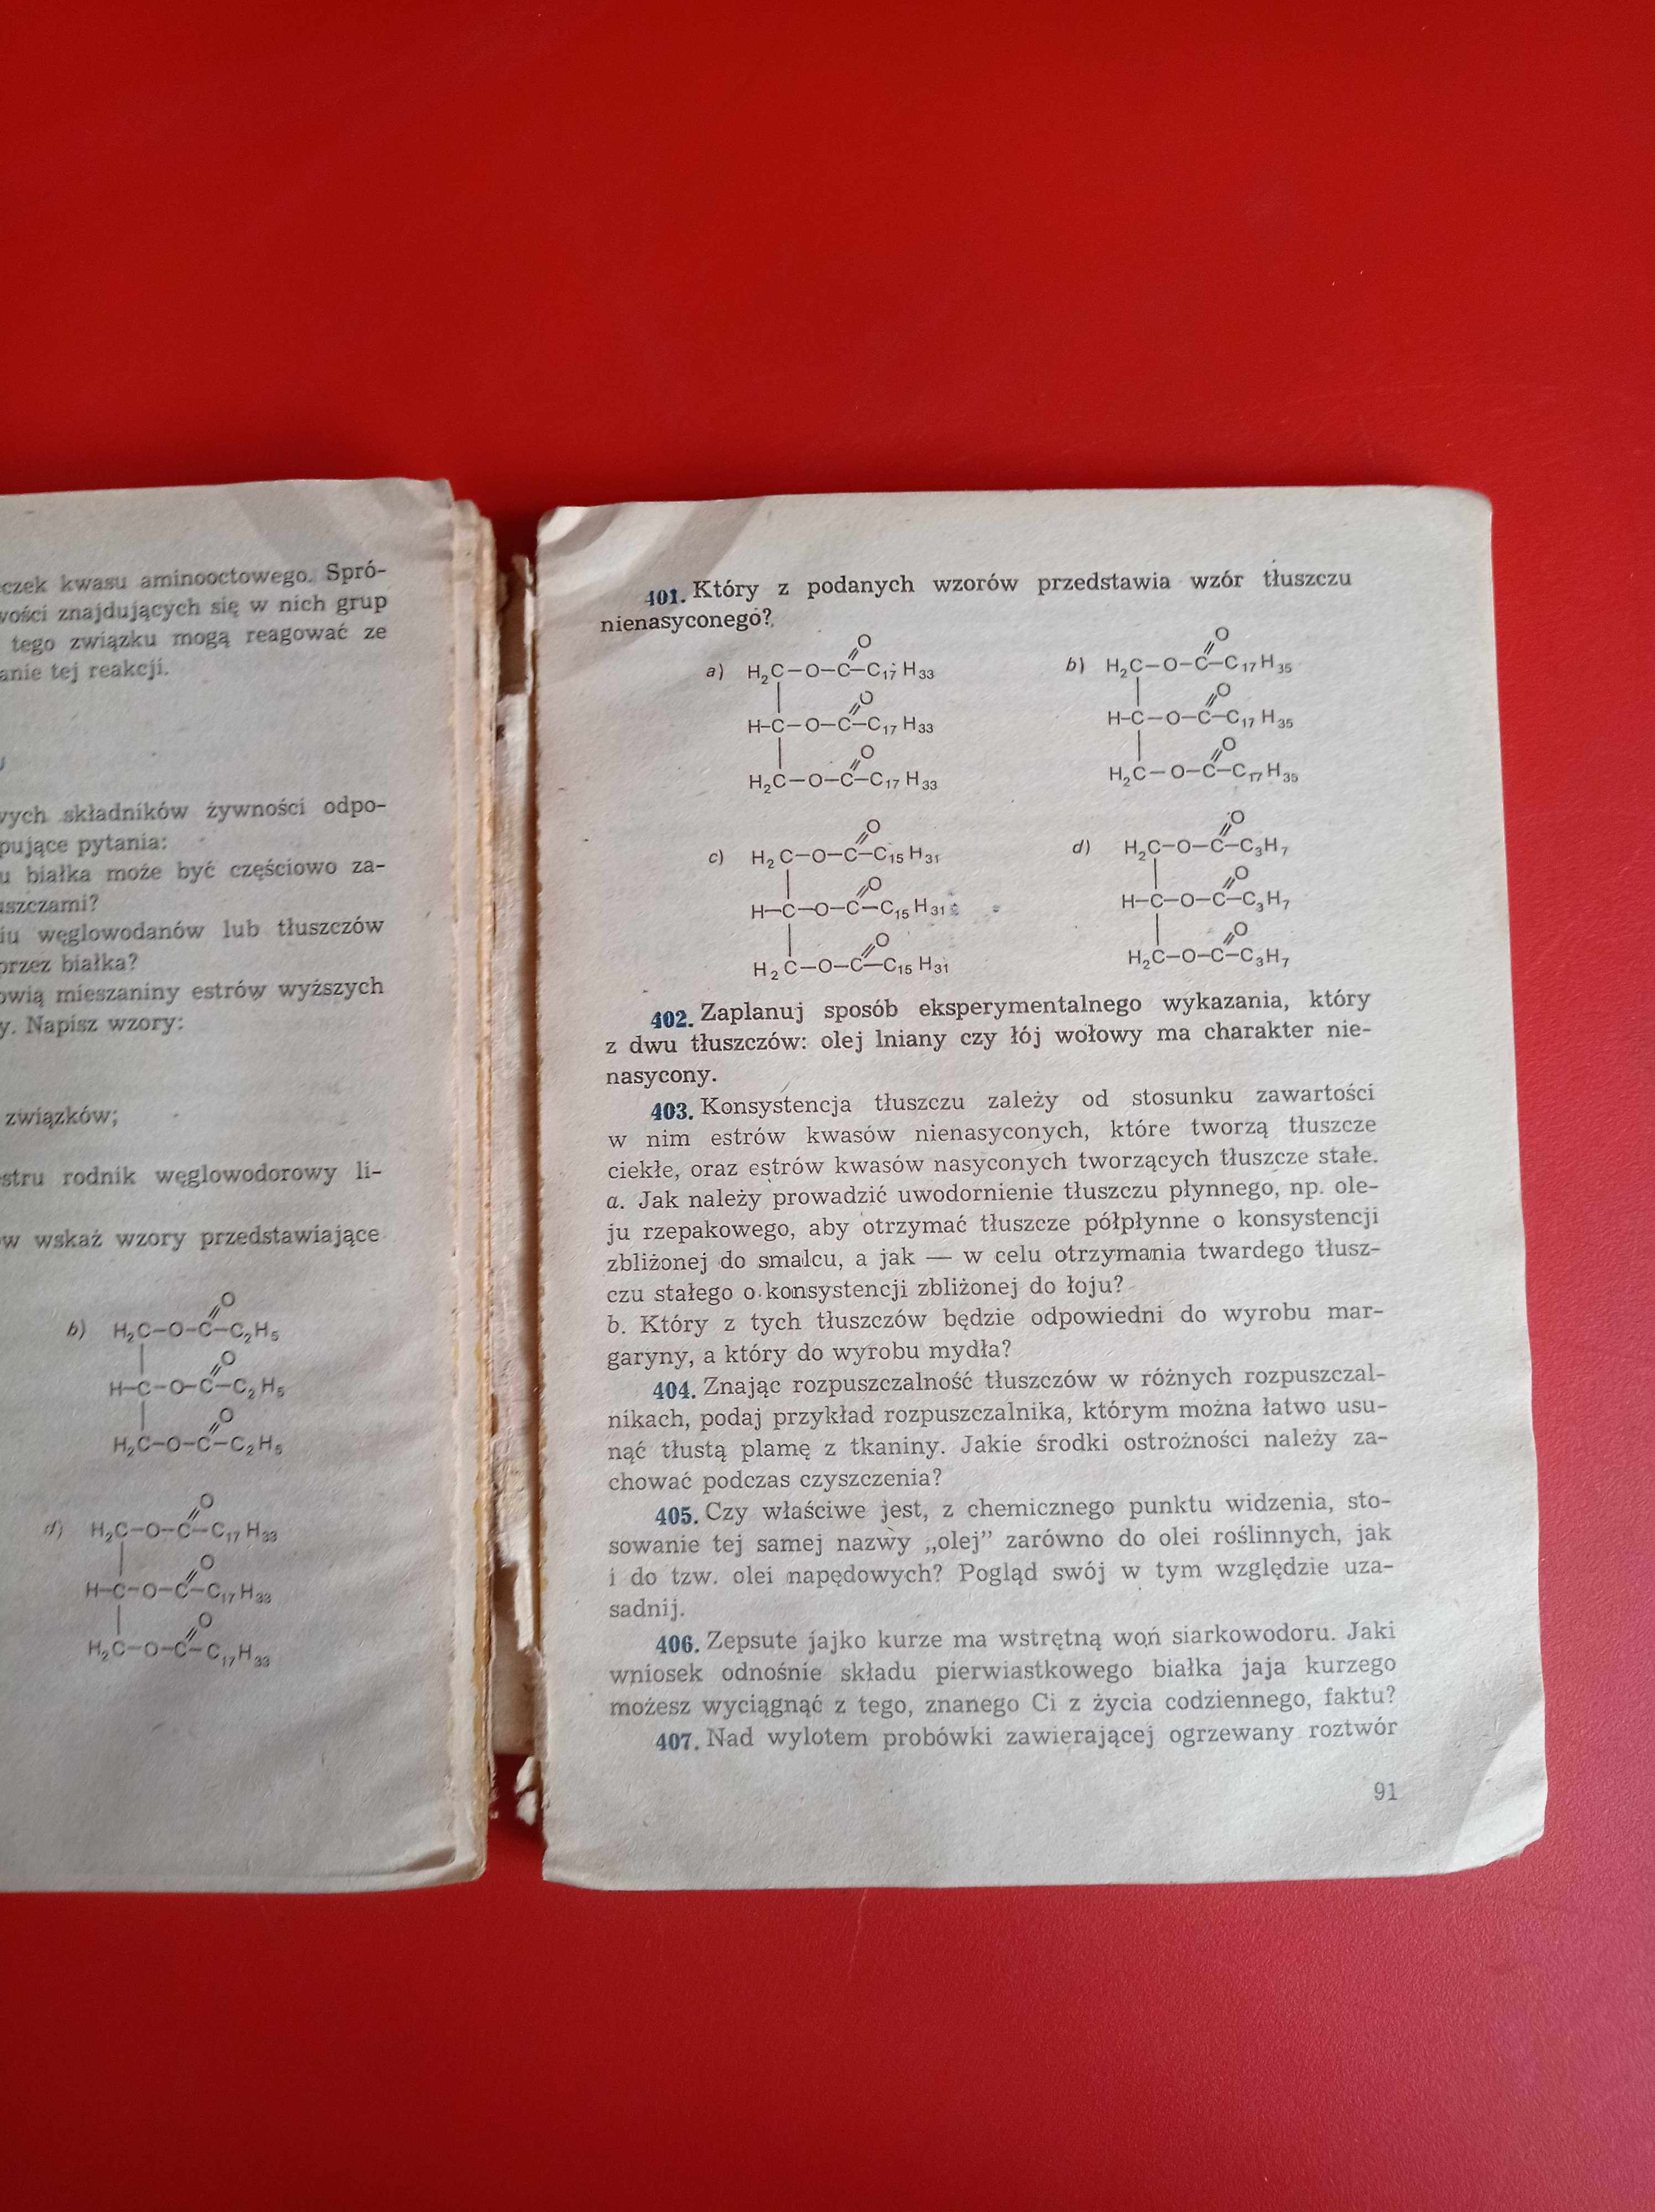 czek kwasu aminooctowego. Spró-
wości znajdujących się w nich grup
tego związku mogą reagować ze
anie tej reakcji.
wych składników żywności odpo-
pujące pytania:
u białka może być częściowo za-
uszczami?
iu węglowodanów lub tłuszczów
przez białka?
owią mieszaniny estrów wyższych
y. Napisz wzory:
związków;
estru rodnik węglowodorowy li-
ów wskaż wzory przedstawiające
O
b) H₂C—O—C—C₂H₅
O
H—C—O—C—C₂H₅
O
H₂C—O—C—C₂H₅
O
d) H₂C—O—C—C₁₇H₃₃
O
H—C—O—C—C₁₇H₃₃
O
H₂C—O—C—C₁₇H₃₃
401. Który z podanych wzorów przedstawia wzór tłuszczu
nienasyconego?
O
a) H₂C—O—C—C₁₇H₃₃
O
H—C—O—C—C₁₇H₃₃
O
H₂C—O—C—C₁₇H₃₃
O
b) H₂C—O—C—C₁₇H₃₅
O
H—C—O—C—C₁₇H₃₅
O
H₂C—O—C—C₁₇H₃₅
O
c) H₂C—O—C—C₁₅H₃₁
O
H—C—O—C—C₁₅H₃₁
O
H₂C—O—C—C₁₅H₃₁
O
d) H₂C—O—C—C₃H₇
O
H—C—O—C—C₃H₇
O
H₂C—O—C—C₃H₇
402. Zaplanuj sposób eksperymentalnego wykazania, który
z dwu tłuszczów: olej lniany czy łój wołowy ma charakter nie-
nasycony.
403. Konsystencja tłuszczu zależy od stosunku zawartości
w nim estrów kwasów nienasyconych, które tworzą tłuszcze
ciekłe, oraz estrów kwasów nasyconych tworzących tłuszcze stałe.
a. Jak należy prowadzić uwodornienie tłuszczu płynnego, np. ole-
ju rzepakowego, aby otrzymać tłuszcze półpłynne o konsystencji
zbliżonej do smalcu, a jak — w celu otrzymania twardego tłusz-
czu stałego o konsystencji zbliżonej do łoju?
b. Który z tych tłuszczów będzie odpowiedni do wyrobu mar-
garyny, a który do wyrobu mydła?
404. Znając rozpuszczalność tłuszczów w różnych rozpuszczal-
nikach, podaj przykład rozpuszczalnika, którym można łatwo usu-
nąć tłustą plamę z tkaniny. Jakie środki ostrożności należy za-
chować podczas czyszczenia?
405. Czy właściwe jest, z chemicznego punktu widzenia, sto-
sowanie tej samej nazwy „olej” zarówno do olei roślinnych, jak
i do tzw. olei napędowych? Pogląd swój w tym względzie uza-
sadnij.
406. Zepsute jajko kurze ma wstrętną woń siarkowodoru. Jaki
wniosek odnośnie składu pierwiastkowego białka jaja kurzego
możesz wyciągnąć z tego, znanego Ci z życia codziennego, faktu?
407. Nad wylotem probówki zawierającej ogrzewany roztwór
91